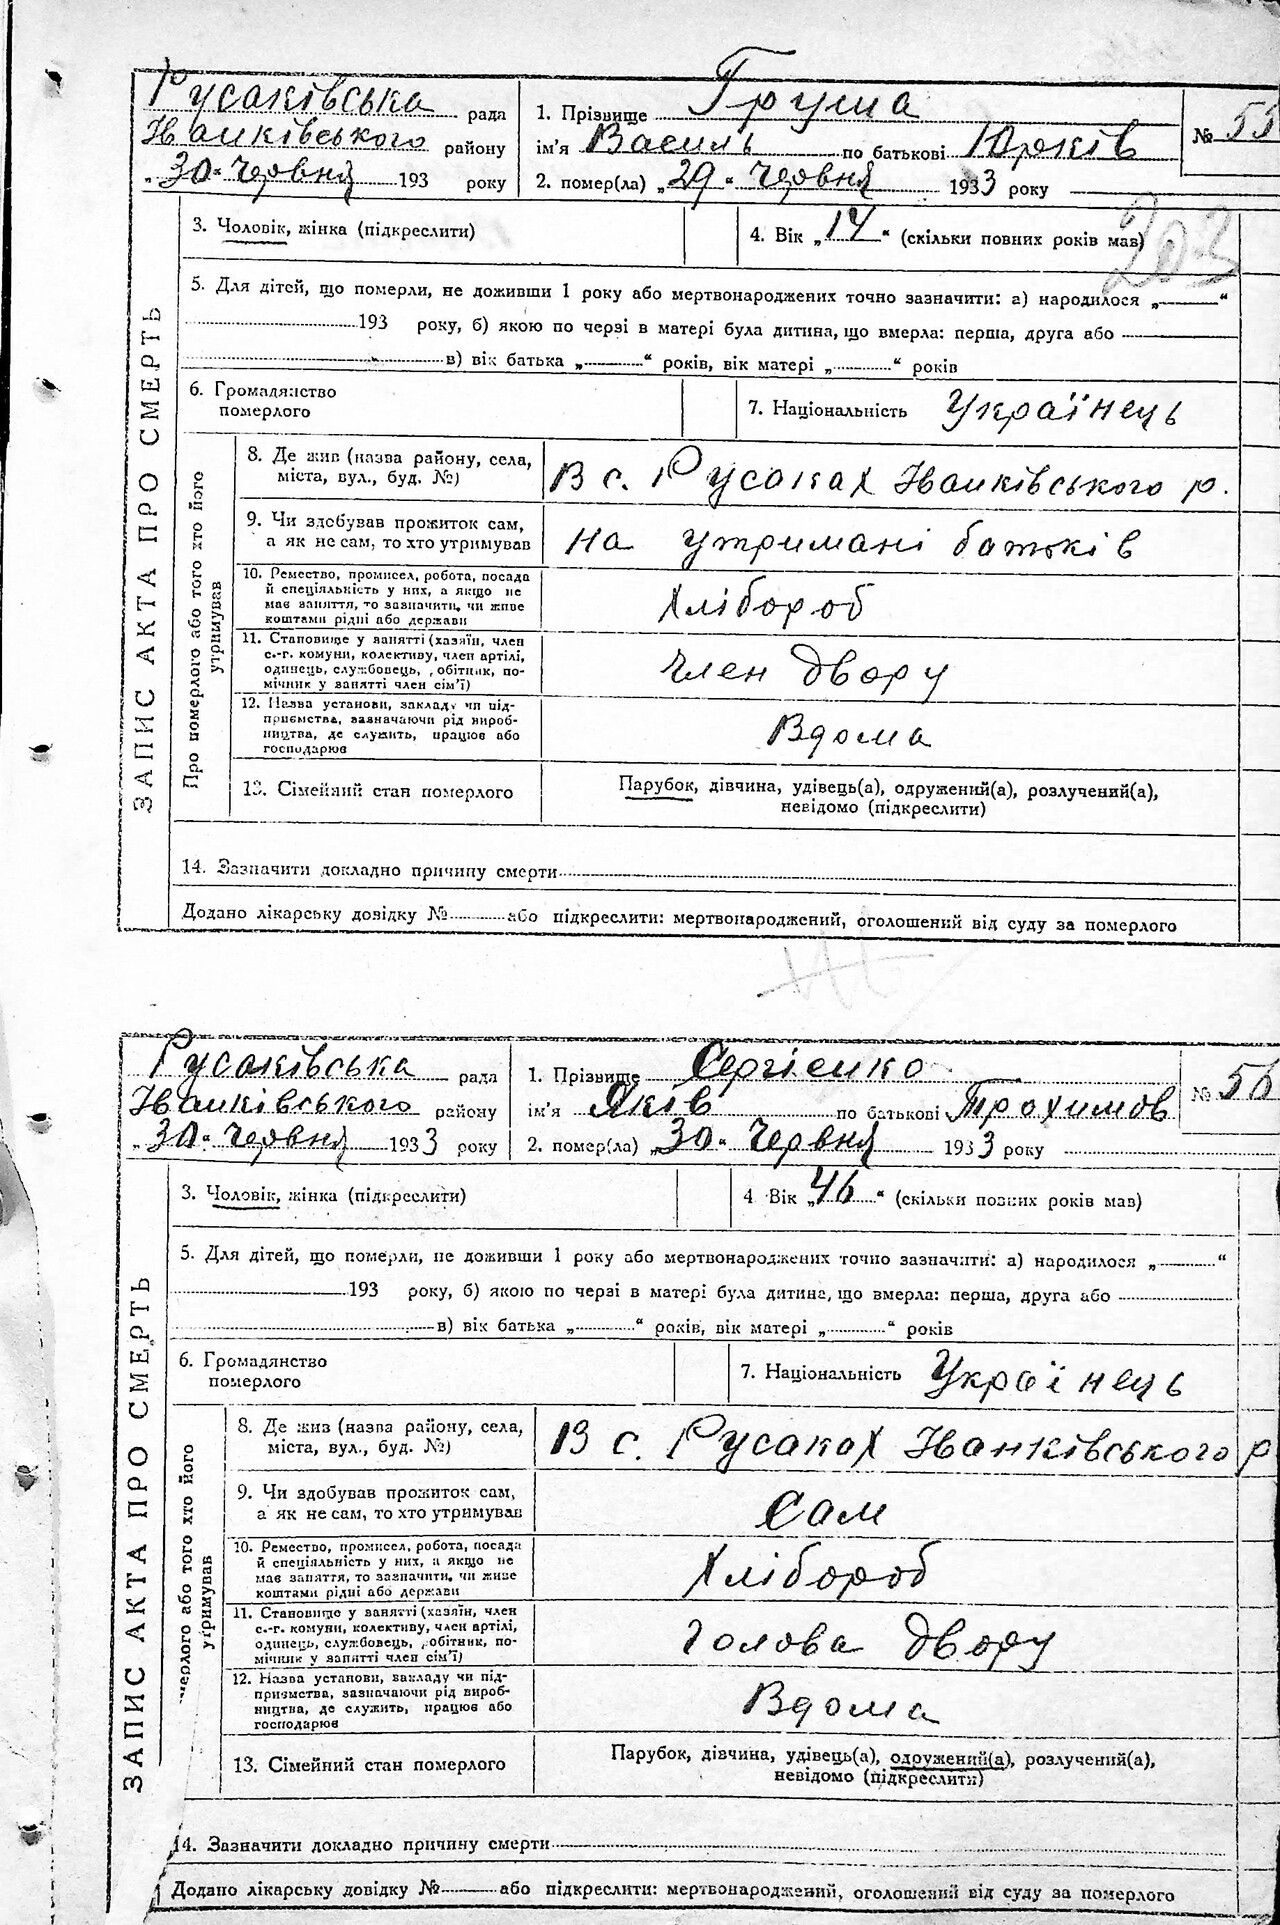 Русаківська рада
Іванківського району
„30“ Червня 193 року
1. Прізвище Груша
ім'я Василь по батькові Юрків
2. помер(ла) „29“ Червня 1933 року
№ 55
203
ЗАПИС АКТА ПРО СМЕРТЬ
3. Чоловік, жінка (підкреслити)
4. Вік „14“ (скільки повних років мав)
5. Для дітей, що померли, не доживши 1 року або мертвонароджених точно зазначити: а) народилося „ “
193 року, б) якою по черзі в матері була дитина, що вмерла: перша, друга або
в) вік батька „ “ років, вік матері „ “ років
6. Громадянство
померлого
7. Національність Українець
Про померлого або того хто його
утримував
8. Де жив (назва району, села,
міста, вул., буд. №)
В с. Русаках Іванківського р.
9. Чи здобував прожиток сам,
а як не сам, то хто утримував
На утримані батьків
10. Ремество, промисел, робота, посада
й спеціяльність у них, а якщо не
має заняття, то зазначити, чи живе
коштами рідні або держави
Хлібороб
11. Становище у занятті (хазяїн, член
с.-г. комуни, колективу, член артілі,
одинець, службовець, робітник, по-
мічник у занятті член сім'ї)
Член двору
12. Назва установи, закладу чи під-
приємства, зазначаючи рід вироб-
ництва, де служить, працює або
господарює
Вдома
13. Сімейний стан померлого
Парубок, дівчина, удівець(а), одружений(а), розлучений(а),
невідомо (підкреслити)
14. Зазначити докладно причину смерти
Додано лікарську довідку № або підкреслити: мертвонароджений, оголошений від суду за померлого
Русаківська рада
Іванківського району
„30“ Червня 1933 року
1. Прізвище Сергієнко
ім'я Яків по батькові Трохимов
2. помер(ла) „30“ Червня 1933 року
№ 56
ЗАПИС АКТА ПРО СМЕРТЬ
3. Чоловік, жінка (підкреслити)
4 Вік „46“ (скільки повних років мав)
5. Для дітей, що померли, не доживши 1 року або мертвонароджених точно зазначити: а) народилося „ “
193 року, б) якою по черзі в матері була дитина, що вмерла: перша, друга або
в) вік батька „ “ років, вік матері „ “ років
6. Громадянство
померлого
7. Національність Українець
мерлого або того хто його
утримував
8. Де жив (назва району, села,
міста, вул., буд. №)
В с. Русаках Іванківського р
9. Чи здобував прожиток сам,
а як не сам, то хто утримував
Сам
10. Ремество, промисел, робота, посада
й спеціяльність у них, а якщо не
має заняття, то зазначити, чи живе
коштами рідні або держави
Хлібороб
11. Становище у занятті (хазяїн, член
с.-г. комуни, колективу, член артілі,
одинець, службовець, робітник, по-
мічник у занятті член сім'ї)
Голова двору
12. Назва установи, закладу чи під-
приємства, зазначаючи рід вироб-
ництва, де служить, працює або
господарює
Вдома
13. Сімейний стан померлого
Парубок, дівчина, удівець(а), одружений(а), розлучений(а),
невідомо (підкреслити)
14. Зазначити докладно причину смерти
Додано лікарську довідку № або підкреслити: мертвонароджений, оголошений від суду за померлого